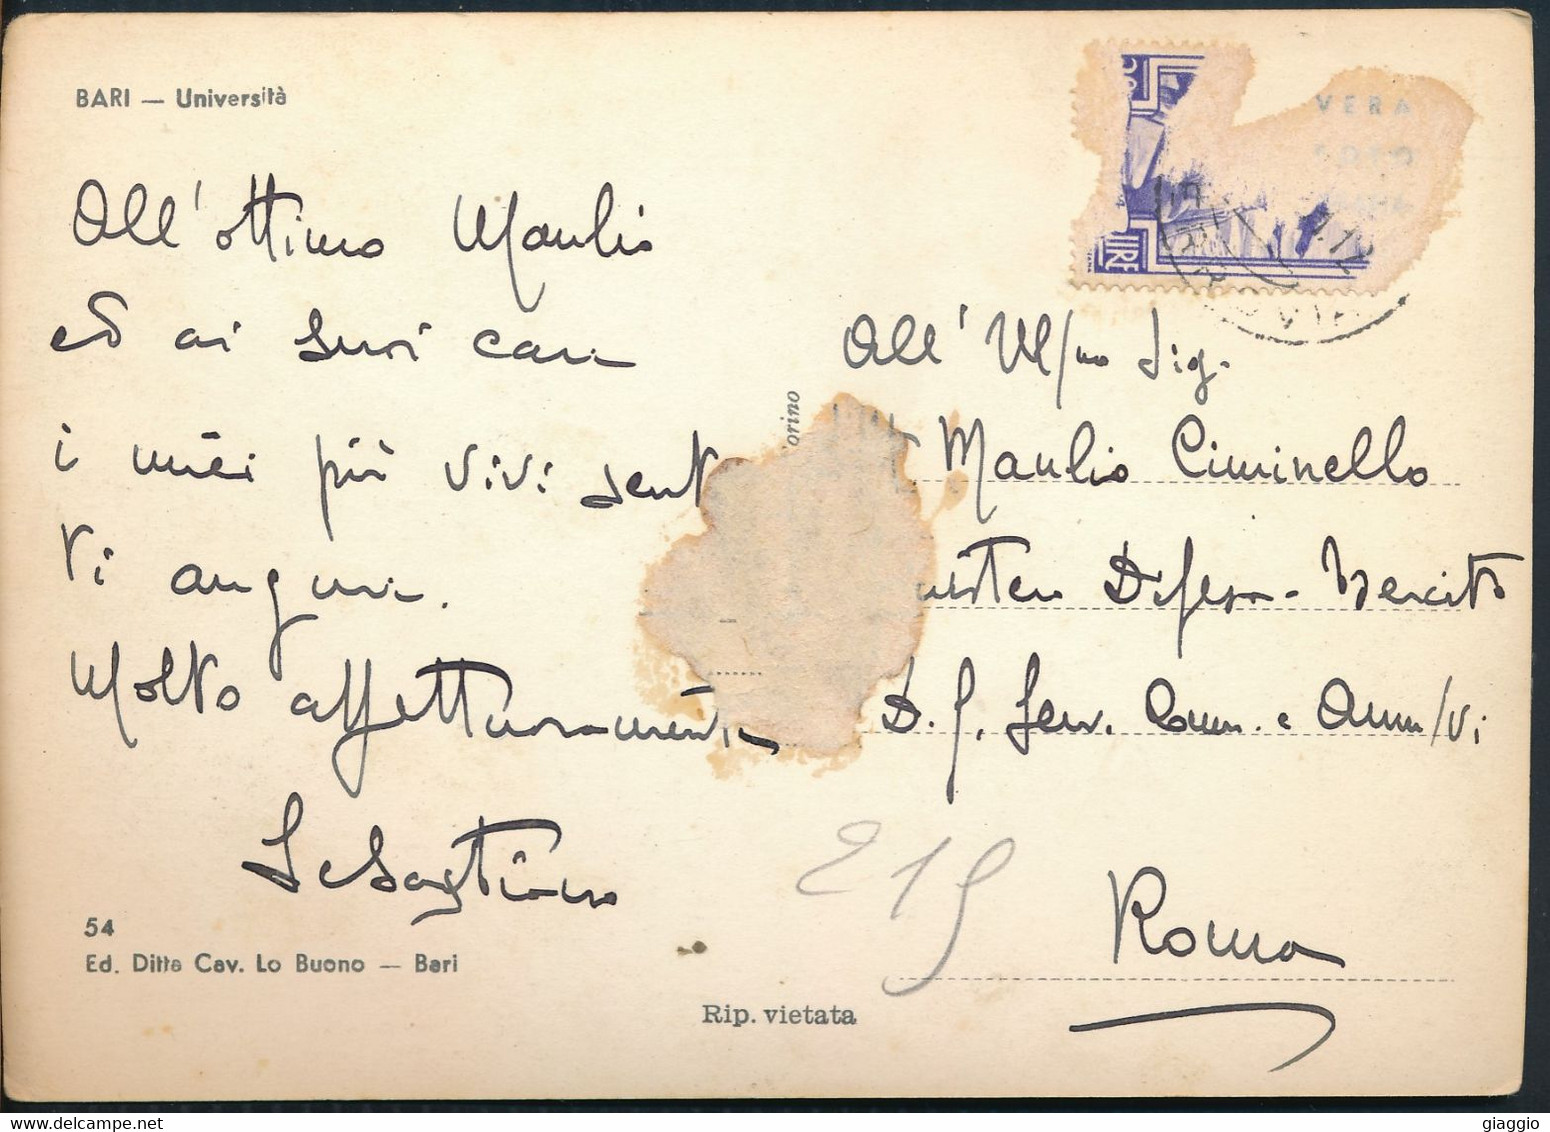 BARI — Università
All'ottimo Manlio
ed ai suoi cari
i miei più vivi sent
ti auguri.
Molto affettuosamente
Sebastiano
54
Ed. Ditta Cav. Lo Buono — Bari
Rip. vietata
orino
LIRE
VERA
FOTO
All' Ill/mo Sig.
Manlio Ciminello
nistero Difesa - Esercito
D. G. Serv. Comm. e Amm/vi
219
Roma
giaggio